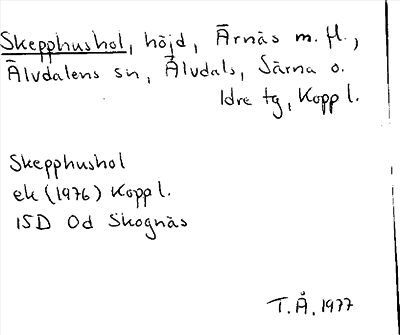 Skepphushol, höjd, Årnäs m. fl.,
Älvdalens sn, Älvdals, Särna o.
Idre tg, Kopp l.
Skepphushol
ek (1976) Kopp l.
15D Od Skognäs
T.Å. 1977